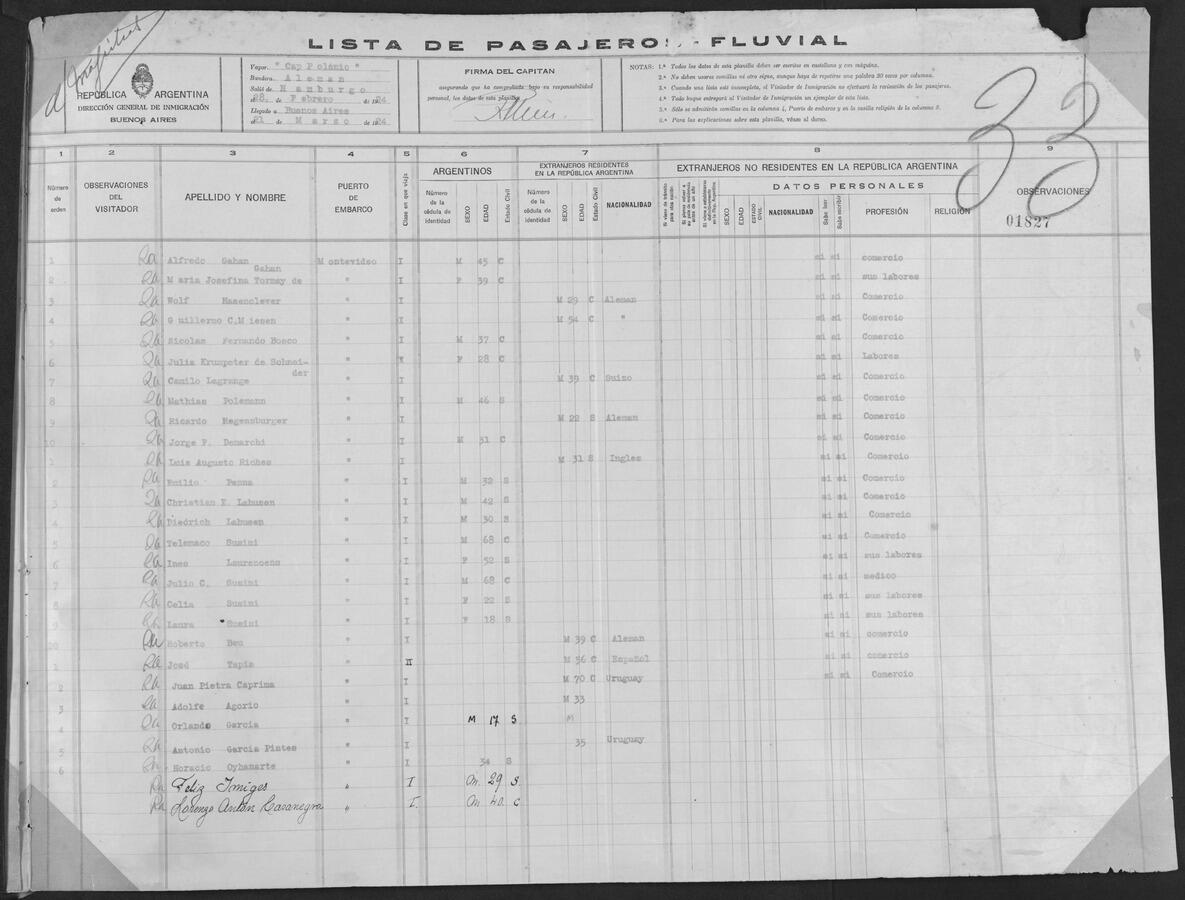 LISTA DE PASAJEROS - FLUVIAL
REPÚBLICA ARGENTINA
DIRECCIÓN GENERAL DE INMIGRACIÓN
BUENOS AIRES
Vapor "Cap Polonio"
Bandera Aleman
Salió de Hamburgo
el 28 de Febrero de 1924
Llegado a Buenos Aires
el 21 de Marzo de 1924
FIRMA DEL CAPITAN
asegurando que ha comprobado bajo su responsabilidad
personal, los datos de esta planilla
NOTAS: 1.ª Todos los datos de esta planilla deben ser escritos en castellano y con máquina.
2.ª No deben usarse comillas ni otro signo, aunque haya de repetirse una palabra 20 veces por columna.
3.ª Cuando una lista esté incompleta, el Visitador de Inmigración no efectuará la revisación de los pasajeros.
4.ª Todo buque entregará al Visitador de Inmigración un ejemplar de esta lista.
5.ª Sólo se admitirán comillas en la columna 4, Puerto de embarco y en la casilla religión de la columna 8.
6.ª Para las explicaciones sobre esta planilla, véase al dorso.
33
1 2 3 4 5 6 7 8 9
Número de orden
OBSERVACIONES DEL VISITADOR
APELLIDO Y NOMBRE
PUERTO DE EMBARCO
Clase en que viaja
ARGENTINOS
Número de la cédula de identidad
SEXO
EDAD
Estado Civil
EXTRANJEROS RESIDENTES EN LA REPÚBLICA ARGENTINA
Número de la cédula de identidad
SEXO
EDAD
Estado Civil
NACIONALIDAD
EXTRANJEROS NO RESIDENTES EN LA REPÚBLICA ARGENTINA
DATOS PERSONALES
SEXO
EDAD
ESTADO CIVIL
NACIONALIDAD
Sabe leer
Sabe escribir
PROFESIÓN
RELIGIÓN
OBSERVACIONES
01827
1 Ra Alfredo Gahan Montevideo I M 45 C si si comercio
Gahan
2 Ra Maria Josefina Tormay de " I F 39 C si si sus labores
3 Ra Wolf Hasenclever " I M 29 C Aleman si si Comercio
4 Ra Guillermo C.Miesen " I M 54 C " si si Comercio
5 Ra Nicolas Fernando Bosco " I M 37 C si si Comercio
6 Ra Julia Krumpeter de Schnei- " I F 28 C si si Labores
der
7 Ra Camilo Lagrange " I M 39 C Suizo si si Comercio
8 Ra Mathias Polemann " I M 46 S si si Comercio
9 Ra Ricardo Regensburger " I M 22 S Aleman si si Comercio
10 Ra Jorge P. Demarchi " I M 31 C si si Comercio
1 Ra Luis Augusto Riches " I M 31 S Ingles si si Comercio
2 Ra Emilio Penna " I M 32 S si si Comercio
3 Ra Christian E. Lahusen " I M 42 S si si Comercio
4 Ra Diedrich Lahusen " I M 30 S si si Comercio
5 Ra Telemaco Susini " I M 68 C si si Comercio
6 Ra Ines " I F 52 S si si sus labores
7 Ra Julio C. Susini " I M 68 C si si medico
8 Ra Celia Susini " I F 22 S si si sus labores
9 Ra Laura Susini " I F 18 S si si sus labores
20 Ra Roberto Beu " I M 39 C Aleman si si comercio
1 Ra José Tapia " II M 56 C Español si si comercio
2 Ra Juan Pietra Caprima " I M 70 C Uruguay si si Comercio
3 Ra Adolfe Agorio " I M 33
4 Ra Orlando Garcia " I M 17 S M
5 Ra Antonio Garcia Pintes " I 35 Uruguay
6 Ra Horacio Oyhanarte " I 34 S
Ra Feliz Imiges " I M. 29 S.
Ra Lorenzo Antón Casanegra " I. M. 40. C